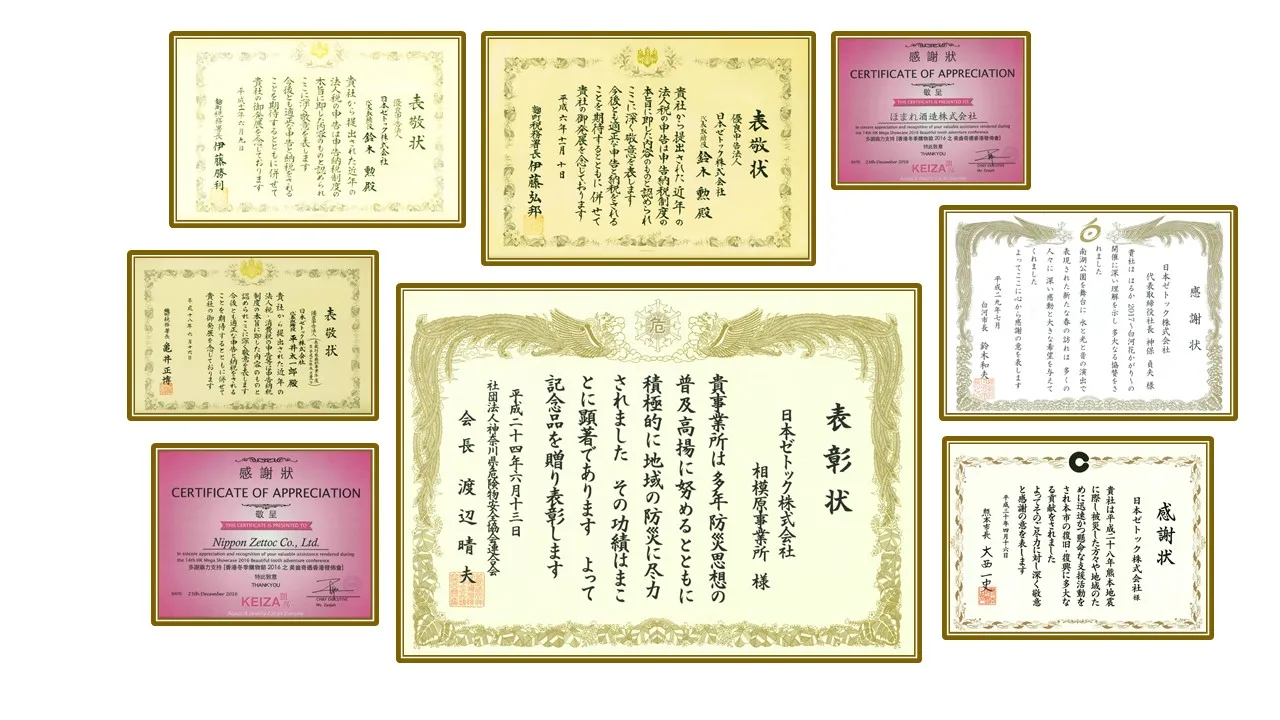 表敬状
優良申告法人
日本ゼトック株式会社
代表取締役 鈴木 勲 殿
貴社から提出された近年の
法人税の申告は申告納税制度の
本旨に即した内容のものと認められ
ここに深く敬意を表します
今後とも適正な申告と納税をされる
ことを期待するとともに併せて
貴社の御発展を念じております
麴町税務署長 伊藤勝利
表敬状
優良申告法人
日本ゼトック株式会社
代表取締役 鈴木 勲 殿
貴社から提出された近年の
法人税の申告は申告納税制度の
本旨に即した内容のものと認められ
ここに深く敬意を表します
今後とも適正な申告と納税をされる
ことを期待するとともに併せて
貴社の御発展を念じております
平成六年十一月十日
麴町税務署長 伊藤弘邦
感謝狀
CERTIFICATE OF APPRECIATION
敬呈
THIS CERTIFICATE IS PRESENTED TO
ほまれ酒造株式会社
In sincere appreciation and recognition of your valuable assistance rendered during
the 14th HK Mega Showcase 2016 Beautiful tooth adventure conference
多謝鼎力支持【香港冬季購物節 2016 之 美齒奇遇香港發佈會】
特此致意
THANKYOU
DATE: 25th December 2016
CHIEF EXECUTIVE
KEIZA
表敬状
優良申告法人
日本ゼトック株式会社
代表取締役 平井太一郎 殿
貴社から提出された近年の
法人税・消費税の申告等は申告納税
制度の本旨に即した内容のものと
認められここに深く敬意を表します
今後とも適正な申告と納税をされる
ことを期待するとともに併せて
貴社の御発展を念じております
平成十八年六月十六日
麴町税務署長 亀井正博
危
表彰状
日本ゼトック株式会社
相模原事業所 様
貴事業所は多年防災思想の
普及高揚に努めるとともに
積極的に地域の防災に尽力
されました その功績はまこ
とに顕著であります よって
記念品を贈り表彰します
平成二十四年六月十三日
社団法人神奈川県危険物安全協会連合会
会長 渡辺晴夫
感謝状
日本ゼトック株式会社
代表取締役社長 神保 貞夫 様
貴社は はるか2017～白河花かがり～の
開催に深い理解を示し 多大なる協賛をさ
れました
南湖公園を舞台に 水と光と音の演出で
表現された新たな春の訪れは 多くの
人々に 深い感動と大きな希望を与えて
くれました
よってここに心から感謝の意を表します
平成二九年七月
白河市長 鈴木和夫
感謝狀
CERTIFICATE OF APPRECIATION
敬呈
THIS CERTIFICATE IS PRESENTED TO
Nippon Zettoc Co., Ltd.
In sincere appreciation and recognition of your valuable assistance rendered during
the 14th HK Mega Showcase 2016 Beautiful tooth adventure conference
多謝鼎力支持【香港冬季購物節 2016 之 美齒奇遇香港發佈會】
特此致意
THANKYOU
DATE: 25th December 2016
CHIEF EXECUTIVE
KEIZA
感謝状
日本ゼトック株式会社 様
貴社は平成二十八年熊本地震
に際し被災した方々や地域のた
めに迅速かつ懸命な支援活動を
され本市の復旧・復興に多大な
る貢献をされました
よってそのご尽力に対し深く敬意
と感謝の意を表します
平成三十年四月十六日
熊本市長 大西一史